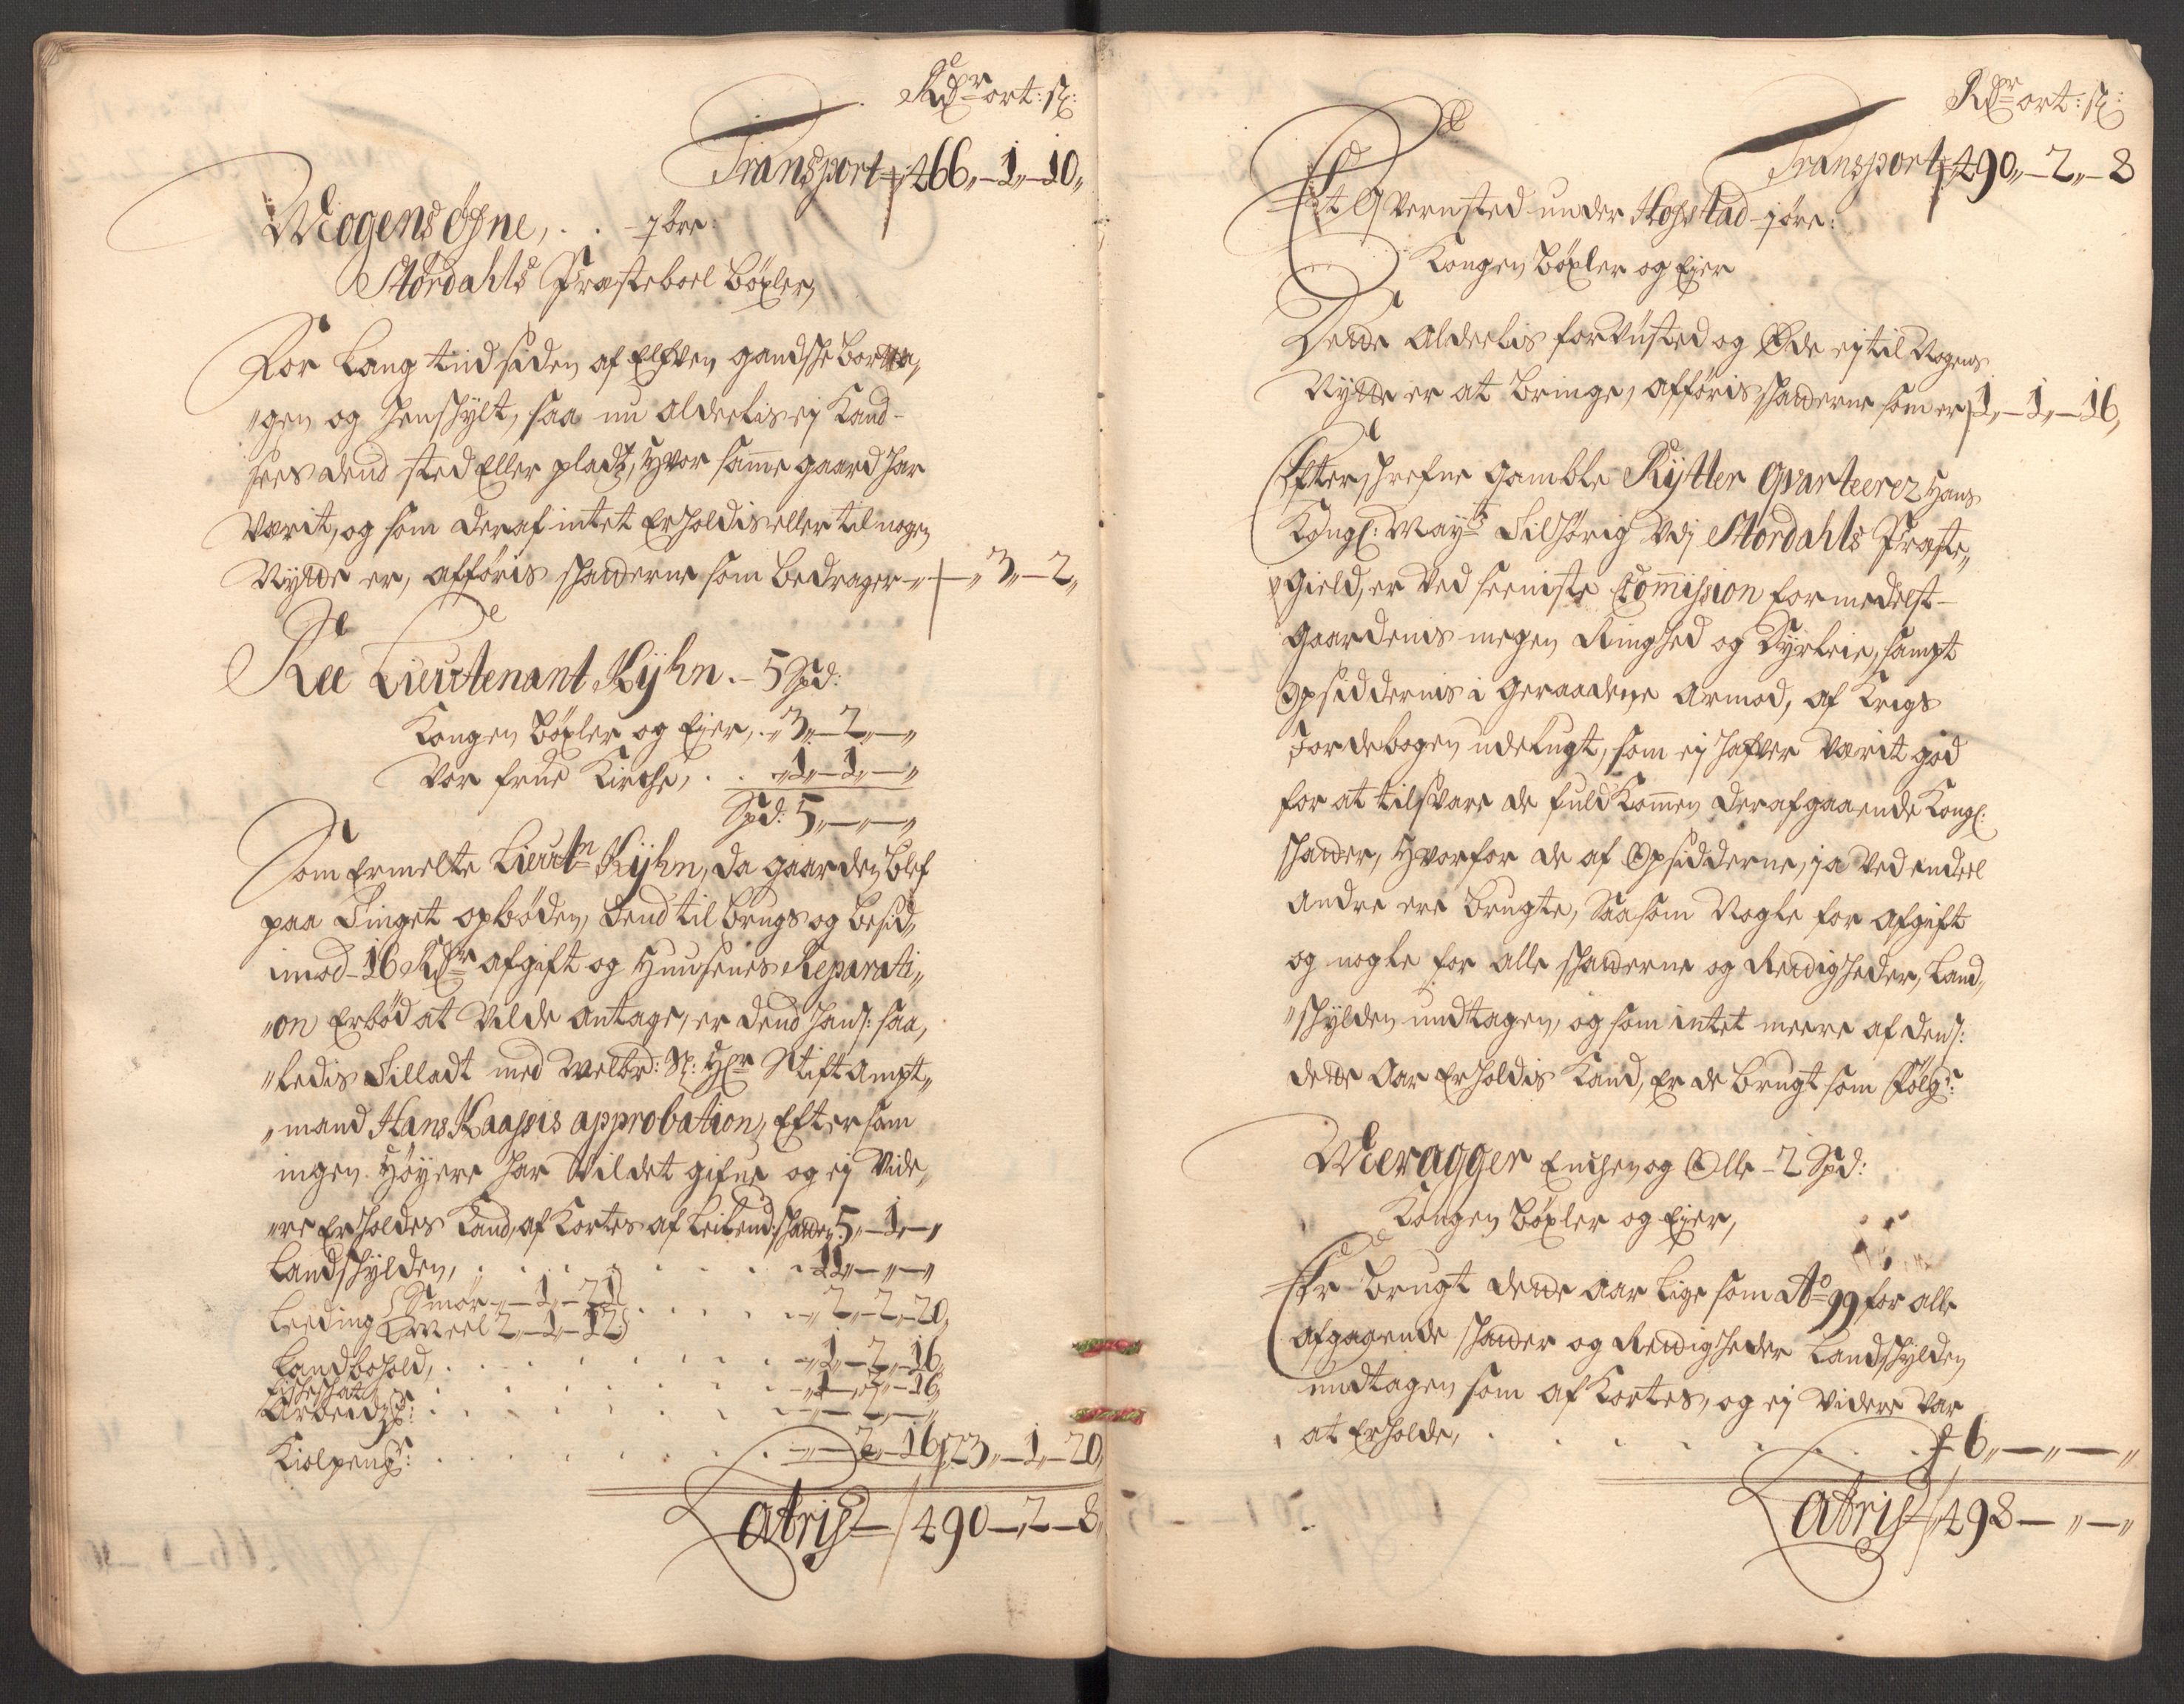 Rdr ort: sz:
Transport 466,,-1,,-10,,
Mogensøÿne, . . - 1 øre:
Størdahls Præsteboel bÿxler,
For lang tiid siden af Elfven gandsche bortta,,
,,gen og henschÿlt, saa nu alderlis ej kand-
sees dend sted Eller pladtz, hvor samme gaard har
verit, og som deraf intet Erholdis eller til nogen
Nÿtte er, afføris schatterne som bedrager - ,,-3,,-2,,
Ree Lieutenant Kÿhn. - 5 Spd:
Kongen bÿxler og Ejer, . 3,,-2,,-,,
Vor frue Kirche, . . . ,,1,,-1,,-,,
Spd: 5,,-,,-,,
Som Ermelte Lieutn Kÿhn, da gaarden blef
paa Tinget opbøden, dend til brugs og besid,,
imod - 16 Rdr afgift og Huusenes Reparati,,
,,on Erbød at vilde antage, er dend ham: saa,,
,,ledis Tilladt med Welbr: Sl: Hr Stiftampt,,
,,mand Hans Kaasis approbation, Eftersom
ingen Høÿere har Vildet gifue og ej Vide,,
,,re Erholdes Kand, af Kortes af Leilend: schatten 5,,-1,,-,,
Landschÿlden, . . . . . . . 11,,-,,-,,
Leeding { Smør - ,,-1,,-21 } . . . . - 2,,-2,,-20,,
{ Meel 2,,-1,,-12 }
Landbohold, . . . . . . . . ,,1,,-2,,-16,,
. . . . . . . . ,,1,,-,,-16,,
Arbeidzp: . . . . . . . . ,,-,,2,,-,,
Kiolpeng: . . . . . . . . ,,-2,,-16 23,,-1,,-20,,
Latris 490-,,2-8,,
Rdr ort: sz:
Transport 490,,-2,,-8
Et Qvernsted under Hofstad - 1 øre:
Kongen bÿxler og Ejer
Dette Alderlis forvüsted og Øde ej til Nogens
Nÿtte er at bringe, afføris schatterne som er 1,,-1,,-16,,
Efterschrefne gamble Rÿtter Qvarteerer Hans
Kongl: Maÿts Tilhørig Vdj Størdahls Præste,,
,,gield, er ved seeniste Commission formedelst-
gaardenis megen Ringhed og dÿrleie, sampt
Opsiddernis i geraadene armod, af Krigs
Jordebogen udelugt, som ej hafver verit god
for at tilsvare de fuldkommen derafgaaende Kongl:
schatter, Hvorfor de af Opsidderne, ja ved endeel
andre ere brugte, Saasom Nogle for afgift
og nogle for alle schatterne og Rettigheder, Land,,
,,schÿlden undtagen, og som intet meere af dem:
dette Aar Erholdis Kand, Er de brugt som følg:
Meragger Enchen og Olle - 2 Spd:
Kongen bÿxler og Ejer,
Er brugt dette aar lige som Ao 99 for alle
afgaaende schatter og Rettigheder Landschÿlden
undtagen som af Kortes, og ej videre var
at Erholde, . . . . . . . 6,,-,,-,,
Latris 498-,,-,,